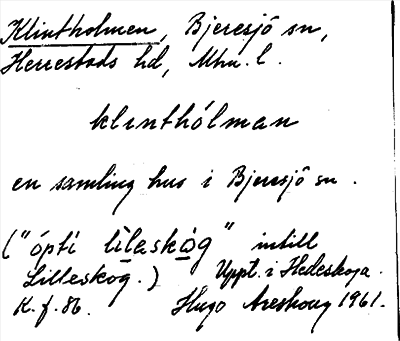 Klintholmen, Bjeresjö sn,
Herrestads hd, Mhn. l.
klinthólman
en samling hus i Bjeresjö sn.
("ópti lileskòg" intill
Lilleskog.) Uppt. i Hedeskoga.
K. f. 86. Hugo Areskoug 1961.